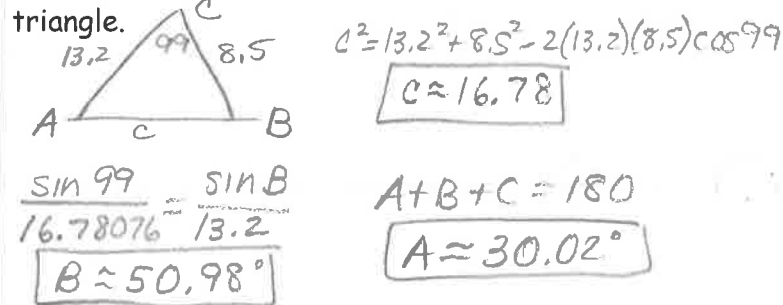 triangle.
C
13.2
99
8.5
A
c
B
c²=13.2²+8.5²-2(13.2)(8.5)cos99
c≈16.78
sin 99/16.78076 = sin B/13.2
B≈50.98°
A+B+C=180
A≈30.02°